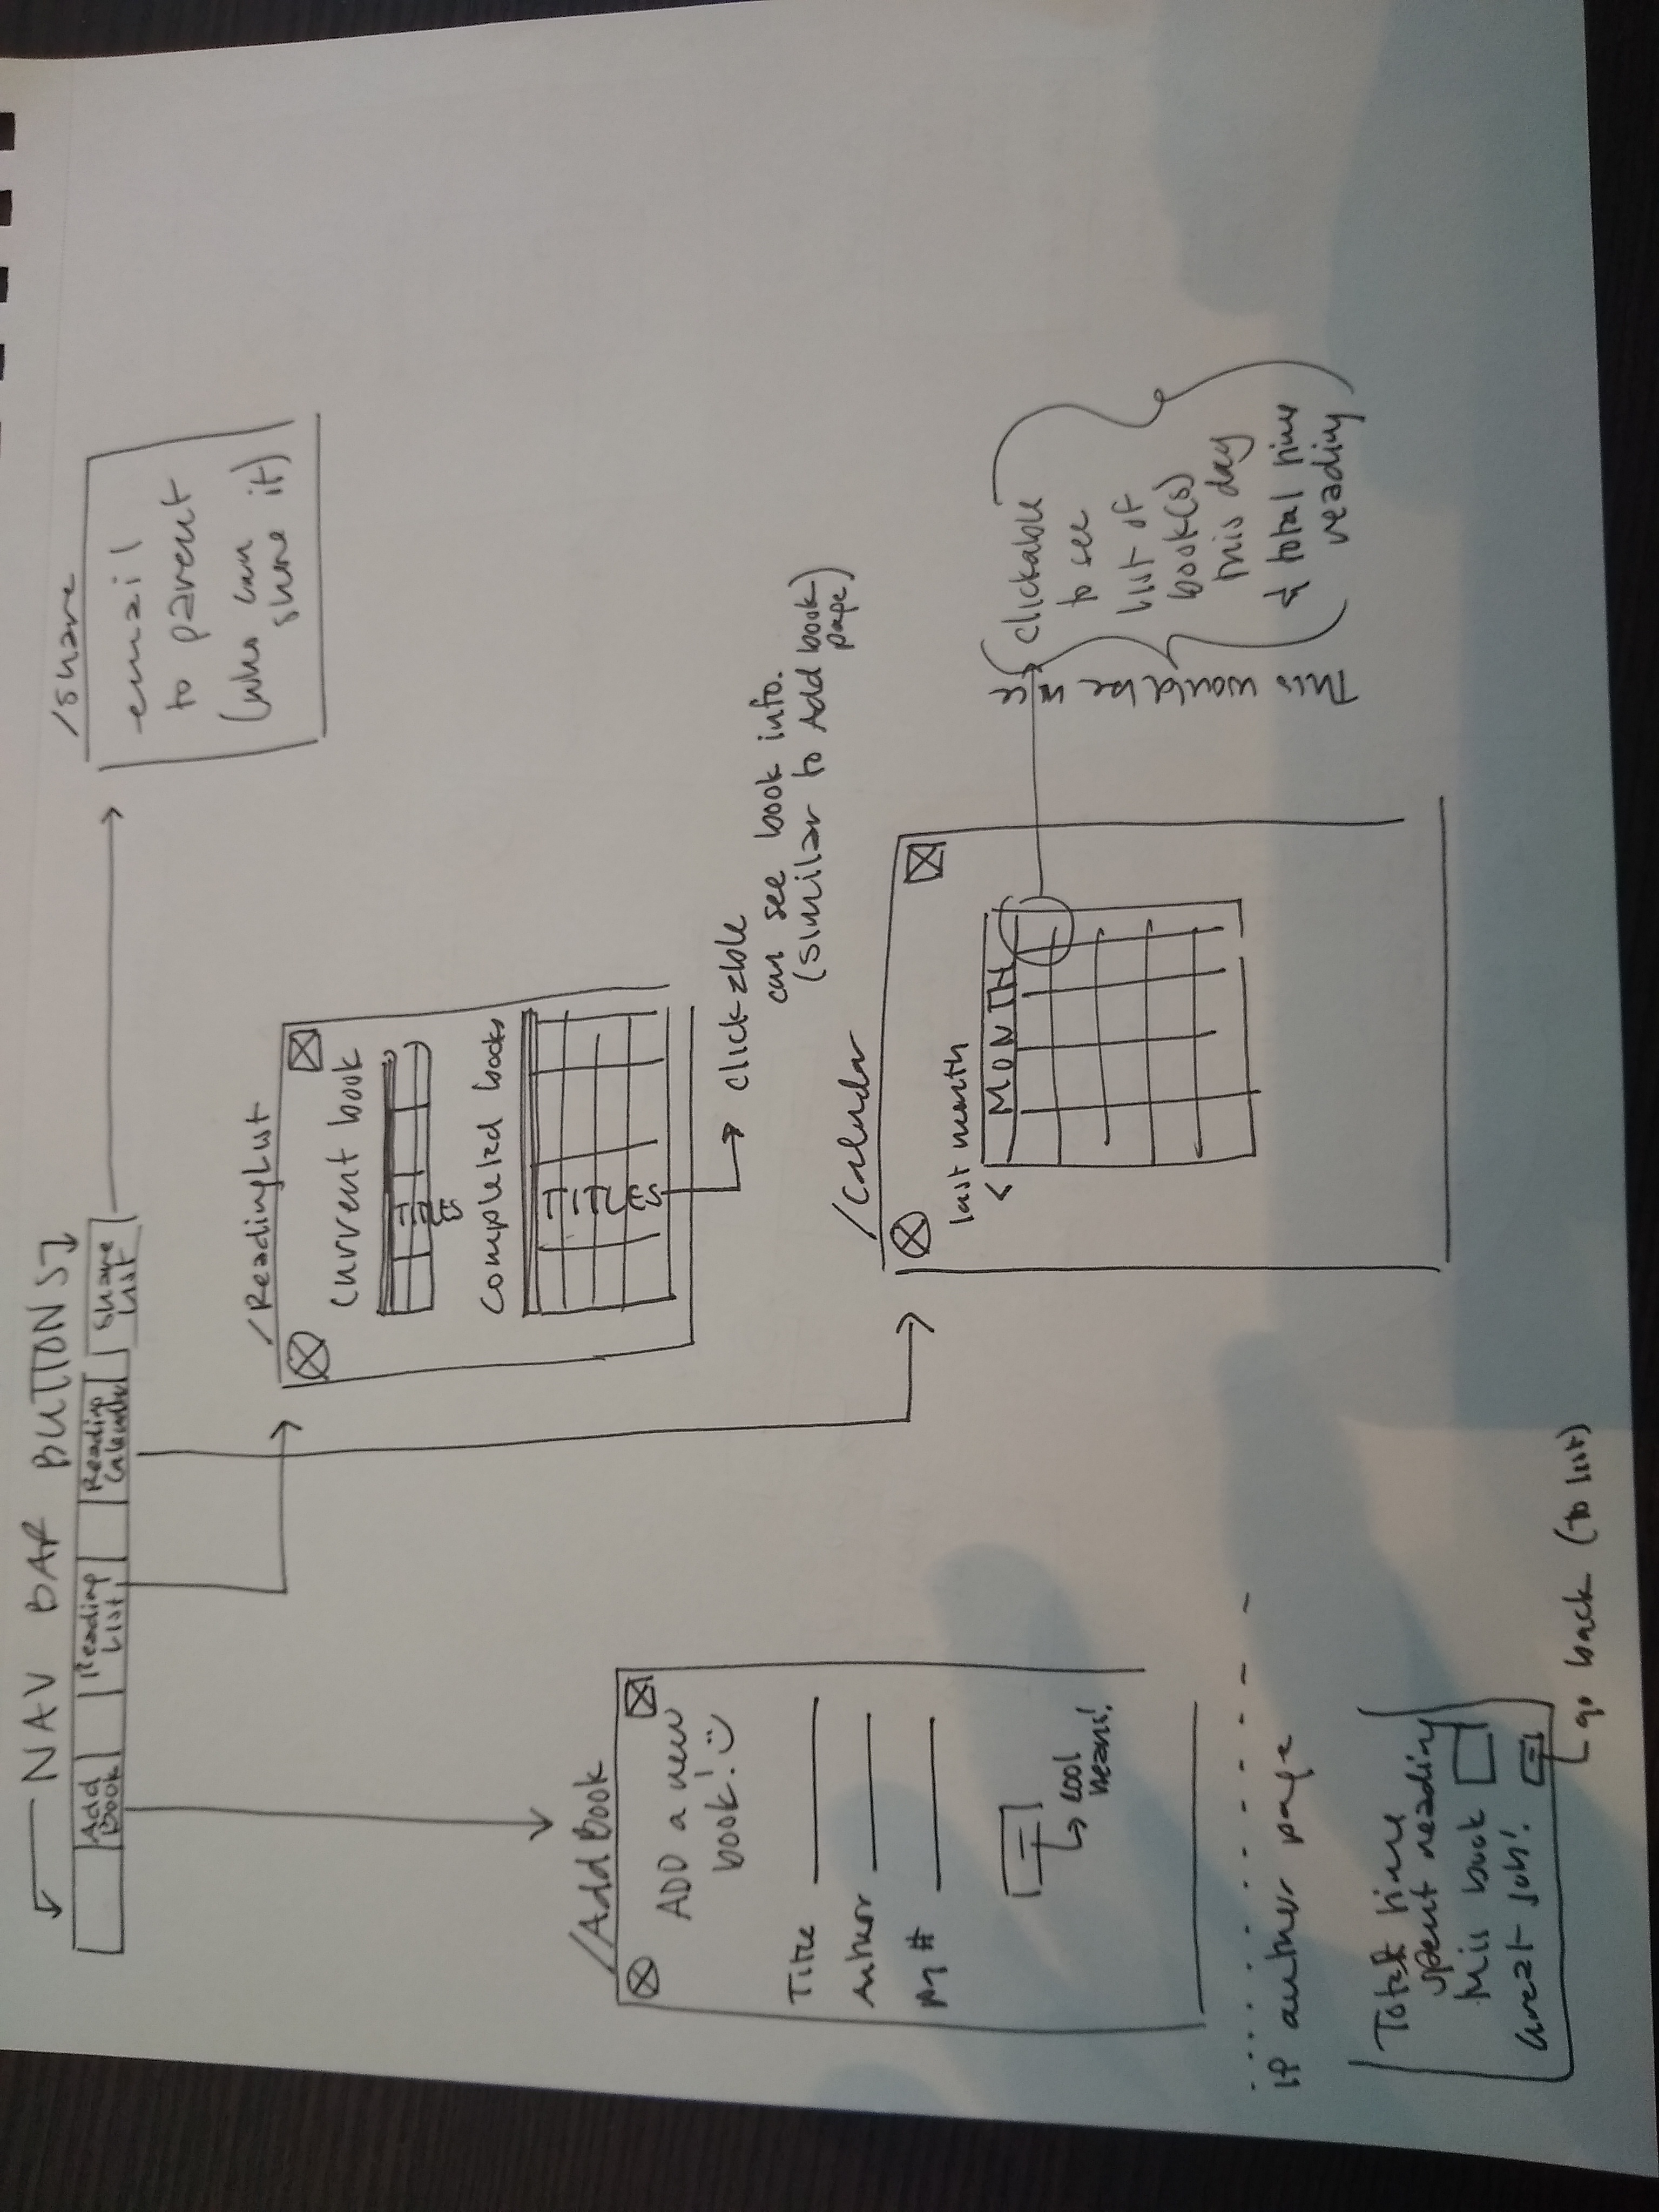 NAV BAR BUTTONS
Add Book
Reading List
Reading Calendar
Share List
/share
email
to parent
(who can
share it)
/ReadingList
current book
TITLES
completed books
TITLES
clickable
can see book info.
(similar to Add book
page)
/AddBook
ADD a new
book!
Title
Author
Pg #
cool
beans!
/Calendar
last month
<
MONTH
This would be nice
clickable
to see
list of
book(s)
this day
& total time
reading
if author page
Total time
spent reading
this book
Great job!
go back (to list)